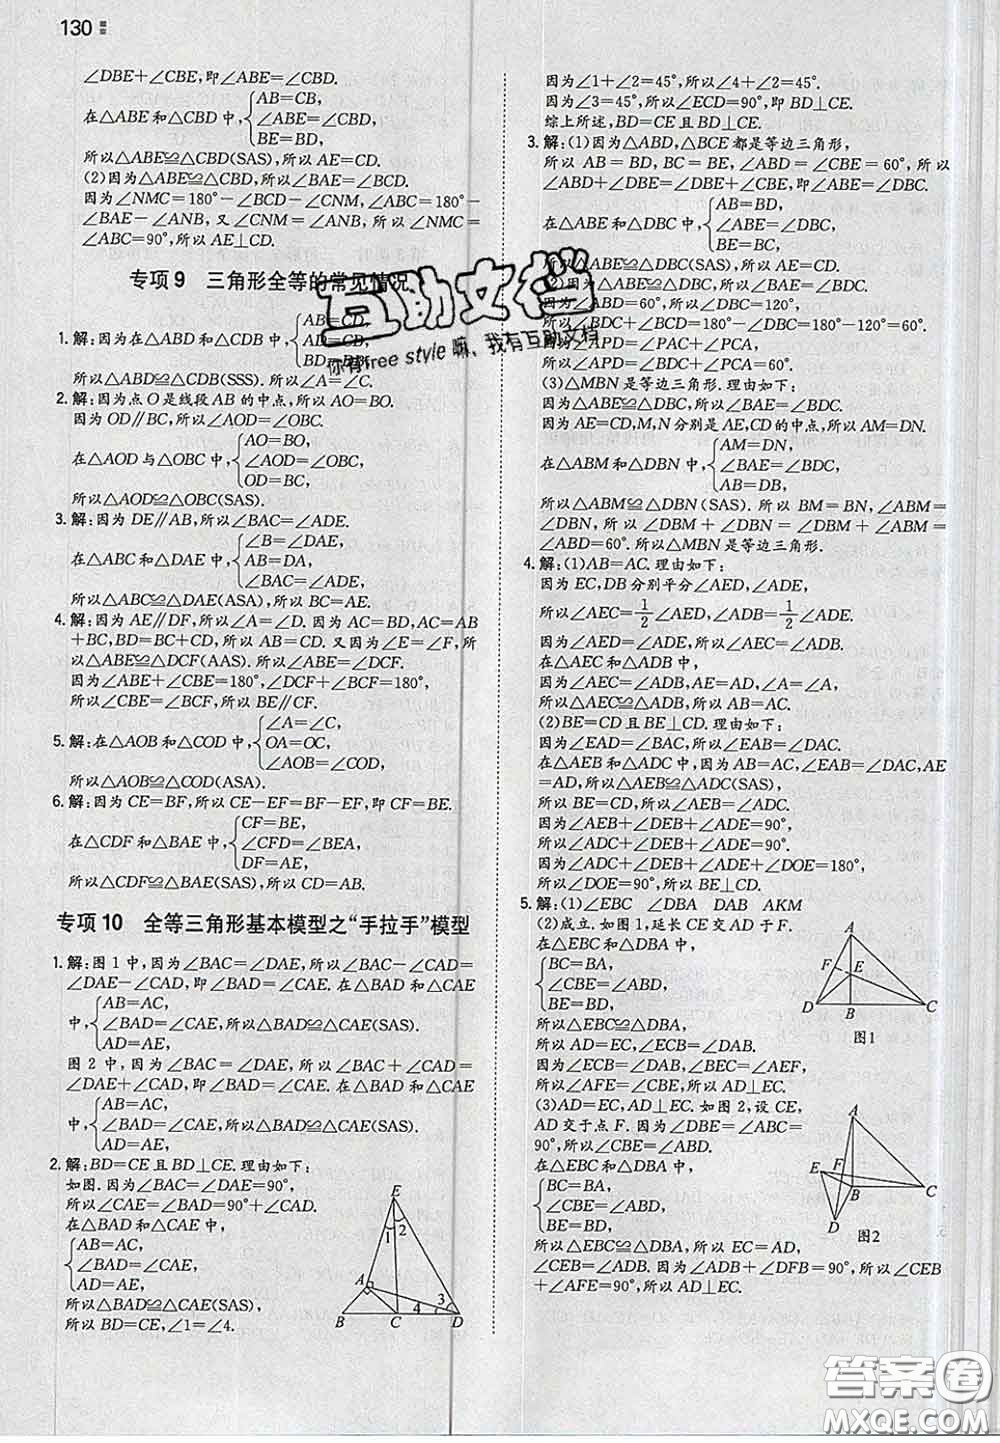 130
∠DBE+∠CBE,即∠ABE=∠CBD.
AB=CB,
在△ABE和△CBD中,∠ABE=∠CBD,
BE=BD,
所以△ABE≌△CBD(SAS),所以AE=CD.
(2)因为△ABE≌△CBD,所以∠BAE=∠BCD.
因为∠NMC=180°-∠BCD-∠CNM,∠ABC=180°-
∠BAE-∠ANB,又∠CNM=∠ANB,所以∠NMC=
∠ABC=90°,所以AE⊥CD.
专项9 三角形全等的常见情况
AB=CD,
1.解:因为在△ABD和△CDB中,AD=CB,
BD=DB,
所以△ABD≌△CDB(SSS).所以∠A=∠C.
2.解:因为点O是线段AB的中点,所以AO=BO.
因为OD∥BC,所以∠AOD=∠OBC.
AO=BO,
在△AOD与△OBC中,∠AOD=∠OBC,
OD=BC,
所以△AOD≌△OBC(SAS).
3.解:因为DE∥AB,所以∠BAC=∠ADE.
∠B=∠DAE,
在△ABC和△DAE中,AB=DA,
∠BAC=∠ADE,
所以△ABC≌△DAE(ASA),所以BC=AE.
4.解:因为AE∥DF,所以∠A=∠D.因为AC=BD,AC=AB
+BC,BD=BC+CD,所以AB=CD.又因为∠E=∠F,所
以△ABE≌△DCF(AAS).所以∠ABE=∠DCF.
因为∠ABE+∠CBE=180°,∠DCF+∠BCF=180°,
所以∠CBE=∠BCF,所以BE∥CF.
∠A=∠C,
5.解:在△AOB和△COD中,OA=OC,
∠AOB=∠COD,
所以△AOB≌△COD(ASA).
6.解:因为CE=BF,所以CE-EF=BF-EF,即CF=BE.
CF=BE,
在△CDF和△BAE中,∠CFD=∠BEA,
DF=AE,
所以△CDF≌△BAE(SAS),所以CD=AB.
专项10 全等三角形基本模型之“手拉手”模型
1.解:图1中,因为∠BAC=∠DAE,所以∠BAC-∠CAD=
∠DAE-∠CAD,即∠BAD=∠CAE.在△BAD和△CAE
AB=AC,
中,∠BAD=∠CAE,所以△BAD≌△CAE(SAS).
AD=AE,
图2中,因为∠BAC=∠DAE,所以∠BAC+∠CAD=
∠DAE+∠CAD,即∠BAD=∠CAE.在△BAD和△CAE
AB=AC,
中,∠BAD=∠CAE,所以△BAD≌△CAE(SAS).
AD=AE,
2.解:BD=CE且BD⊥CE.理由如下:
如图.因为∠BAC=∠DAE=90°,
所以∠CAE=∠BAD=90°+∠CAD.
在△BAD和△CAE中,
AB=AC,
∠BAD=∠CAE,
AD=AE,
所以△BAD≌△CAE(SAS).
所以BD=CE,∠1=∠4.
E
1 2
A
3
4
B C D
因为∠1+∠2=45°,所以∠4+∠2=45°.
因为∠3=45°,所以∠ECD=90°,即BD⊥CE.
综上所述,BD=CE且BD⊥CE.
3.解:(1)因为△ABD,△BCE都是等边三角形,
所以AB=BD,BC=BE,∠ABD=∠CBE=60°,所以
∠ABD+∠DBE=∠DBE+∠CBE,即∠ABE=∠DBC.
AB=BD,
在△ABE和△DBC中,∠ABE=∠DBC,
BE=BC,
所以△ABE≌△DBC(SAS),所以AE=DC.
(2)因为△ABE≌△DBC,所以∠BAE=∠BDC.
因为∠ABD=60°,所以∠DBC=120°,
所以∠BDC+∠BCD=180°-∠DBC=180°-120°=60°.
所以∠APD=∠PAC+∠PCA,
所以∠APD=∠BDC+∠PCA=60°.
(3)△MBN是等边三角形.理由如下:
因为△ABE≌△DBC,所以∠BAE=∠BDC.
因为AE=CD,M,N分别是AE,CD的中点,所以AM=DN.
AM=DN,
在△ABM和△DBN中,∠BAE=∠BDC,
AB=DB,
所以△ABM≌△DBN(SAS).所以BM=BN,∠ABM=
∠DBN,所以∠DBM+∠DBN=∠DBM+∠ABM=
∠ABD=60°.所以△MBN是等边三角形.
4.解:(1)AB=AC.理由如下:
因为EC,DB分别平分∠AED,∠ADE,
所以∠AEC=1/2∠AED,∠ADB=1/2∠ADE,
因为∠AED=∠ADE,所以∠AEC=∠ADB.
在△AEC和△ADB中,
因为∠AEC=∠ADB,AE=AD,∠A=∠A,
所以△AEC≌△ADB,所以AB=AC.
(2)BE=CD且BE⊥CD.理由如下:
因为∠EAD=∠BAC,所以∠EAB=∠DAC.
在△AEB和△ADC中,因为AB=AC,∠EAB=∠DAC,AE
=AD,所以△AEB≌△ADC(SAS),
所以BE=CD,所以∠AEB=∠ADC.
因为∠AEB+∠DEB+∠ADE=90°,
所以∠ADC+∠DEB+∠ADE=90°.
因为∠ADC+∠DEB+∠ADE+∠DOE=180°,
所以∠DOE=90°,所以BE⊥CD.
5.解:(1)∠EBC ∠DBA DAB AKM
(2)成立.如图1,延长CE交AD于F.
在△EBC和△DBA中,
BC=BA,
∠EBC=∠ABD,
BE=BD,
所以△EBC≌△DBA,
所以AD=EC,∠ECB=∠DAB.
因为∠ECB=∠DAB,∠BEC=∠AEF,
所以∠AFE=∠CBE=90°,所以AD⊥EC.
(3)AD=EC,AD⊥EC.如图2,设CE,
AD交于点F.因为∠DBE=∠ABC=
90°,所以∠CBE=∠ABD.
在△EBC和△DBA中,
BC=BA,
∠CBE=∠ABD,
BE=BD,
所以△EBC≌△DBA,所以EC=AD,
∠CEB=∠ADB.因为∠ADB+∠DFB=90°,所以∠CEB
+∠AFE=90°,所以AD⊥EC.
A
F E
D B C
图1
A
E F
B C
D
图2
互助文档
你有free style嘛、我有互助文档
答案圈
MXQE.COM